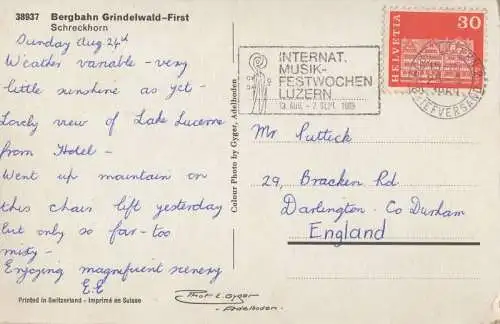 38937 Bergbahn Grindelwald–First
Schreckhorn
Sunday Aug 24th
Weather variable - very
little sunshine as yet -
Lovely view of Lake Lucerne
from Hotel -
Went up mountain on
this chair lift yesterday
but only so far - too
misty -
Enjoying magnificent scenery
E.E
Printed in Switzerland - Imprimé en Suisse
Colour Photo by Gyger, Adelboden
Phot E. Gyger
- Adelboden -
INTERNAT.
MUSIK-
FESTWOCHEN
LUZERN
HELVETIA
30
BRIEFVERSAND
Mr Puttick
29, Bracken Rd
Darlington - Co Durham
England